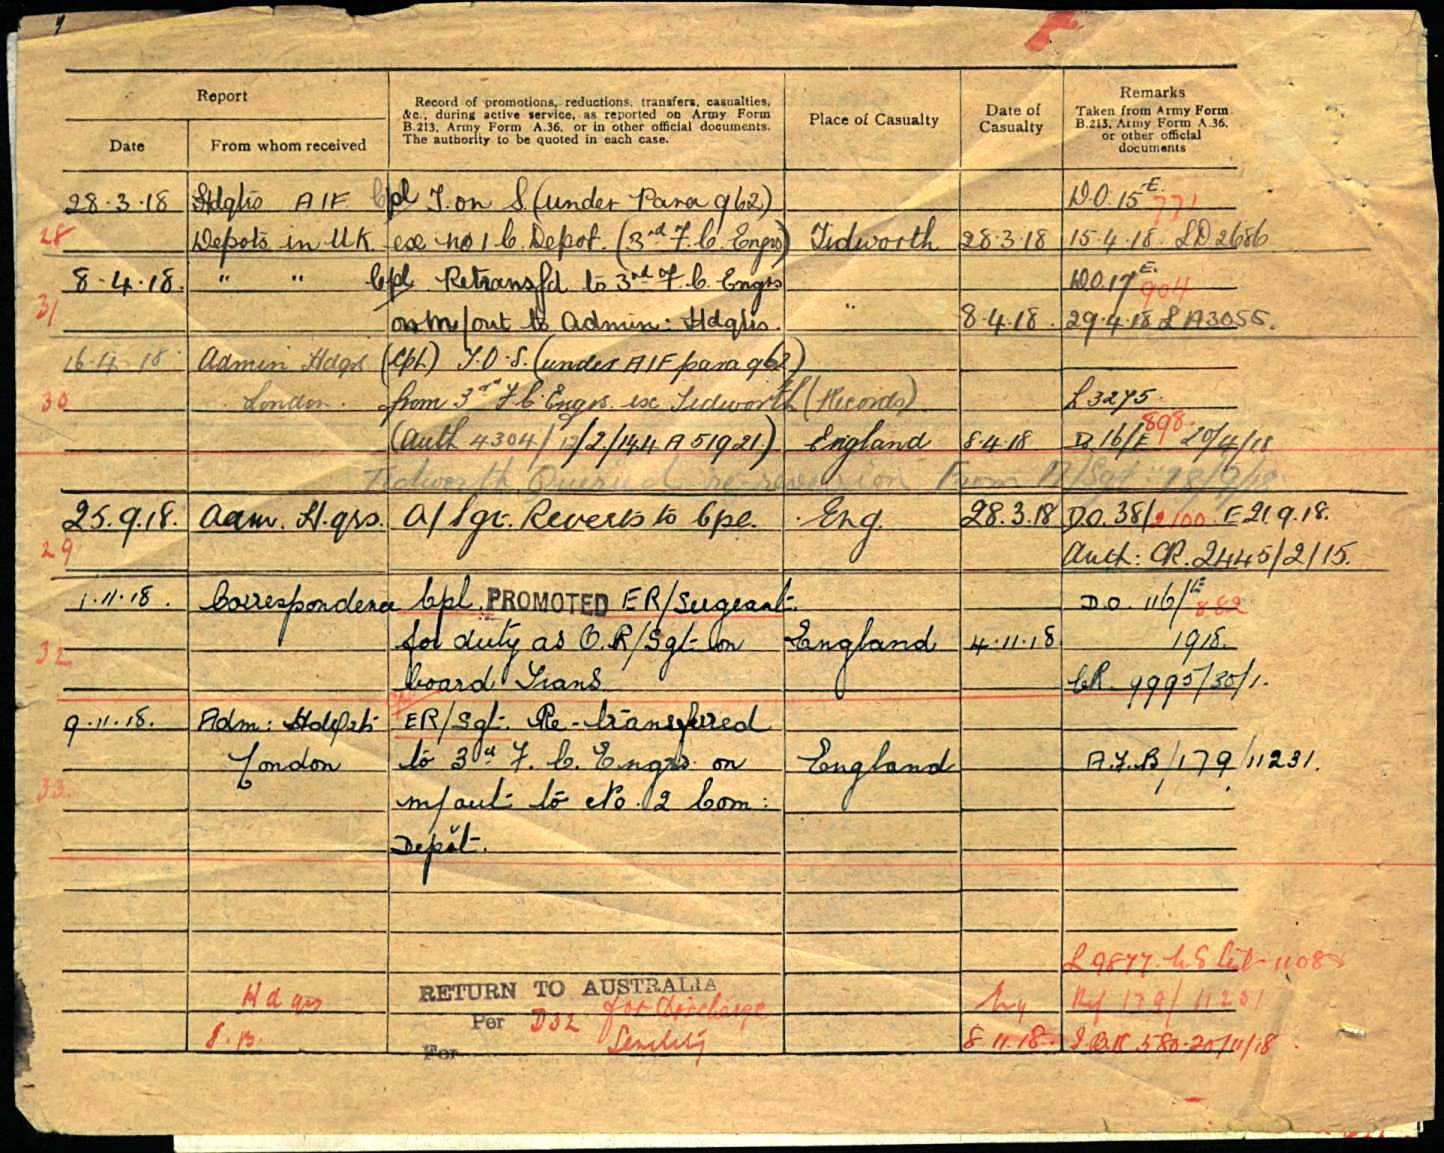 Report
Record of promotions, reductions, transfers, casualties,
&c., during active service, as reported on Army Form
B.213, Army Form A.36, or in other official documents.
The authority to be quoted in each case.
Place of Casualty
Date of
Casualty
Remarks
Taken from Army Form
B.213, Army Form A.36,
or other official
documents
Date
From whom received
28.3.18 Hdqts AIF Cpl T. on S. (under Para 962) D.O. 15 E. 771
28 Depots in UK ex No 1 C. Depot. (3rd F. C. Engrs) Tidworth 28.3.18 15.4.18 LD 2686
8.4.18. " " Cpl. Retransfd to 3rd F. C. Engrs D.O. 17 E. 904
31 on m/out to Admin: Hdqrs. " 8.4.18. 29.4.18 LA3055.
16.4.18 Admin Hdqrs (Cpl) T.O.S. (under AIF para 962)
30 London. from 3rd F. C. Engrs. ex Tidworth (Records) L 3275.
(Auth 4304/12/2/144 A 51921) England 8.4.18 D 16/E 898 20/4/18
Tidworth Queried re-reversion From A/Sgt
25.9.18. Adm. H.qrs. A/Sgt. Reverts to Cpl. Eng. 28.3.18 D.O. 38/2100 E 21.9.18.
29 Auth: CR. 2445/2/15.
1.11.18. Correspondence Cpl. PROMOTED ER/Sergeant. D.O. 116/E 882
32 for duty as O.R/Sgt on England 4.11.18 1918.
board Trans CR 9995/30/1.
9.11.18. Adm: Hdqrts ER/Sgt. Re-transferred
London to 3rd F. C. Engrs on England A.F.B/179/11231.
33. m/out to No. 2 Com:
Depôt.
L 9877
Hdqrs RETURN TO AUSTRALIA 179/11231
Per D32 for Discharge
Senility 8.11.18. 580.20/11/18
For